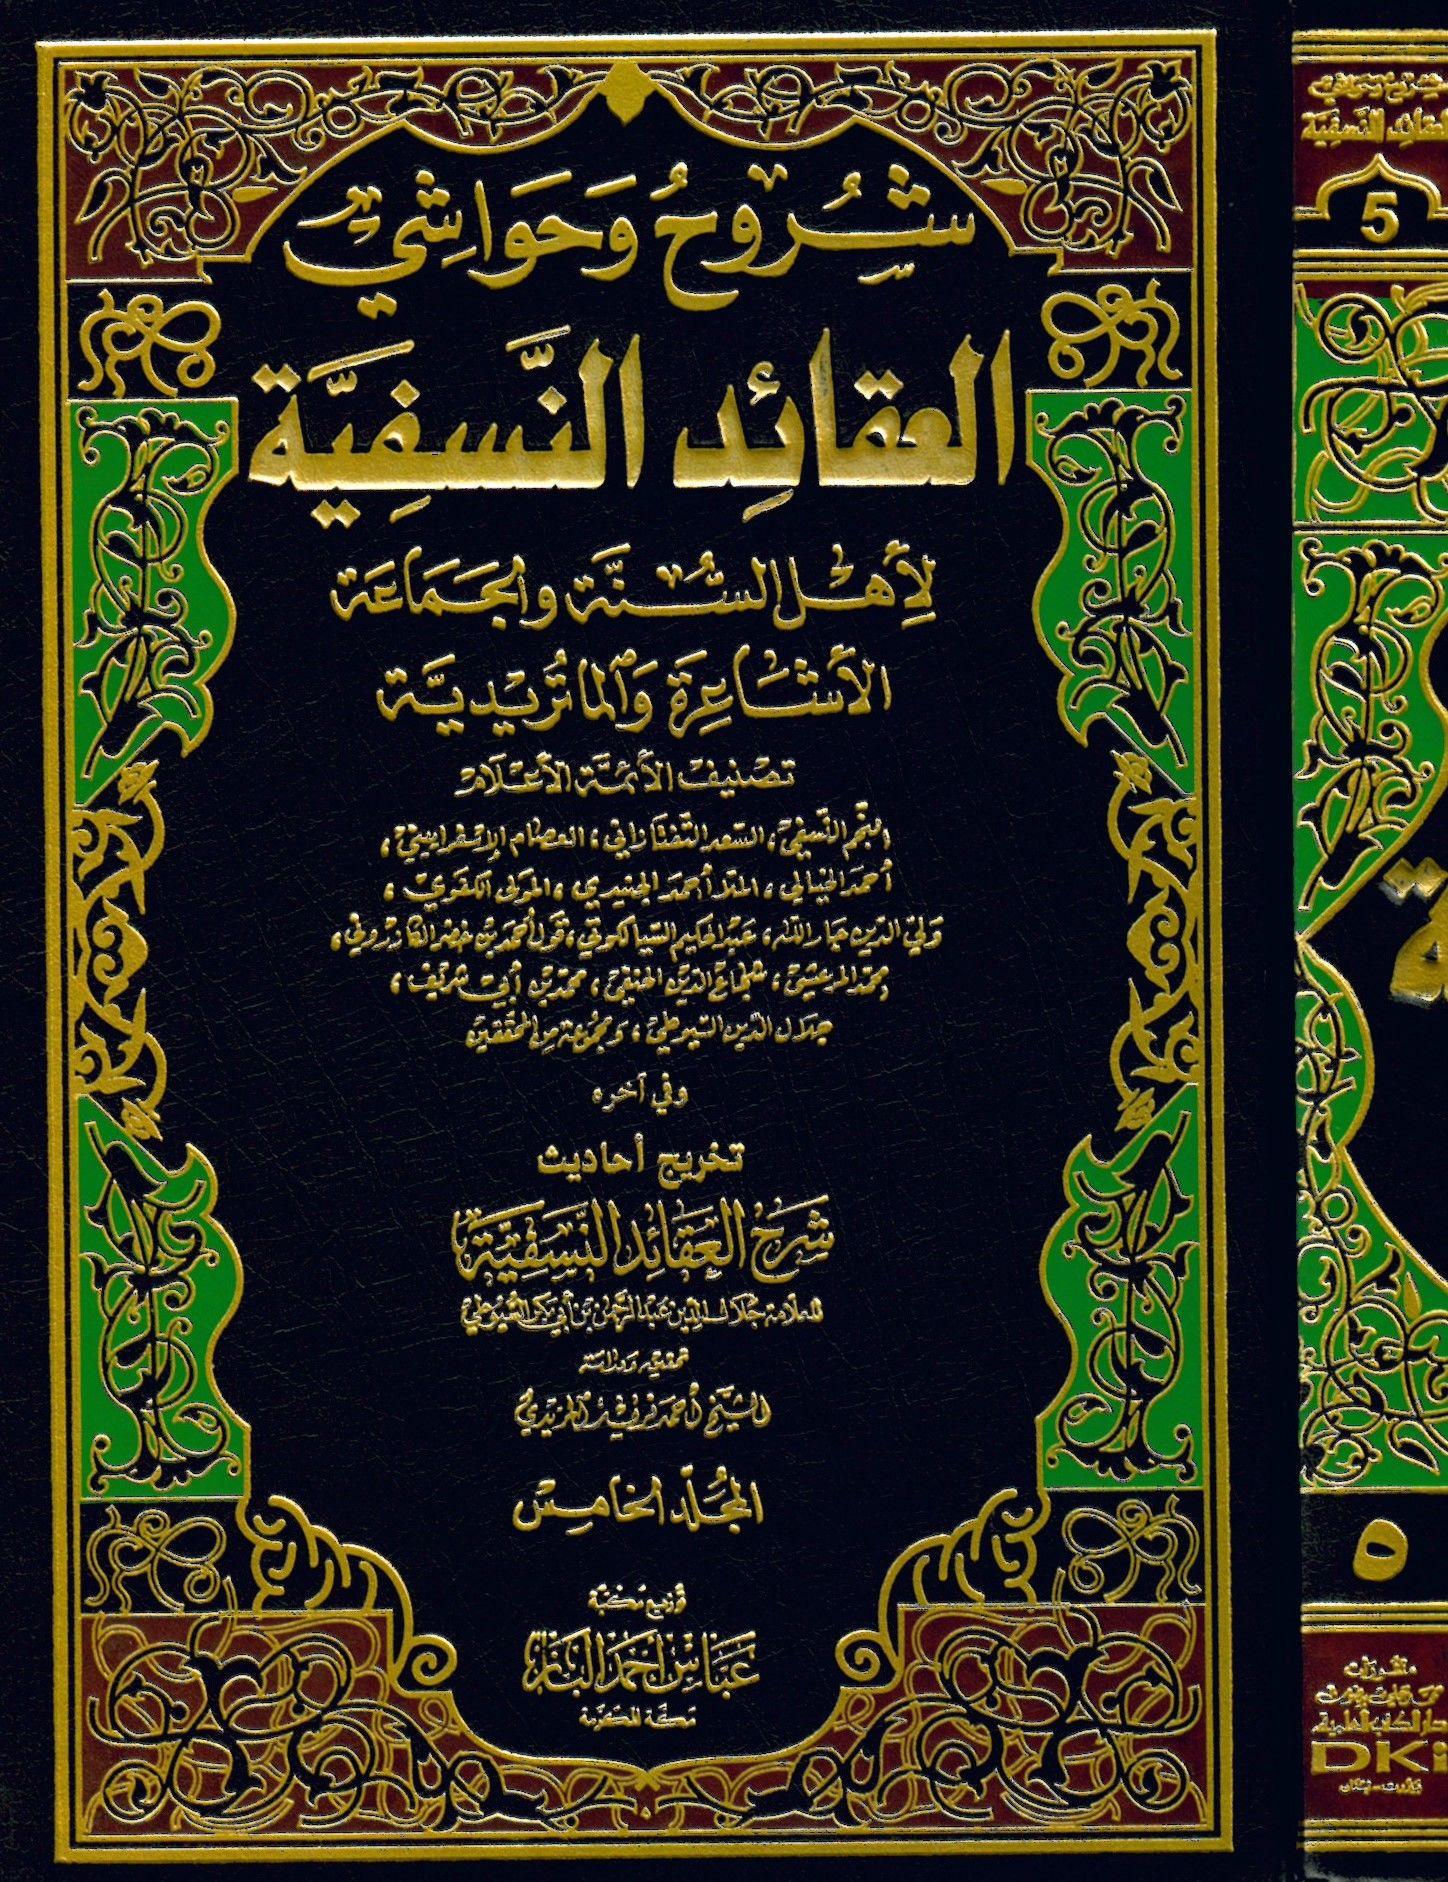 شُرُوحُ وَحَوَاشِي
العقائد النَّسفِيَّة
لأهل السُّنَّة والجَمَاعَة
الأشَاعِرَة وَالماتُريديَّة
تصنيف الأئمَّة الأعلام
النجم النّسفي، السعد التّفتازاني، العصام الإسفراييني،
أحمد الخيالي، الملا أحمد الجنيدي، المولى الكفوي،
ولي الدين جار الله، عبد الحكيم السيالكوتي، قول أحمد بن خضر الكازروني،
محمد المرعشي، شجاع الدين الحنفي، محمد بن أبي شريف،
جلال الدين السيوطي، ومجموعة من المحققين
وفي آخره
تخريج أحاديث
شَرحُ العَقَائِد النَّسَفِيَّة
للعلامة جلال الدين عبد الرحمن بن أبي بكر السيوطي
تحقيق ودراسة
الشيخ أحمد فريد المزيدي
المجلّد الخامس
توزيع مكتبة
عَبّاس أحمَد البَاز
مكة المكرمة
شروح وحواشي
العقائد النسفية
5
ة
٥
منشورات
محمد علي بيضون
دار الكتب العلمية
DKi
بيروت - لبنان